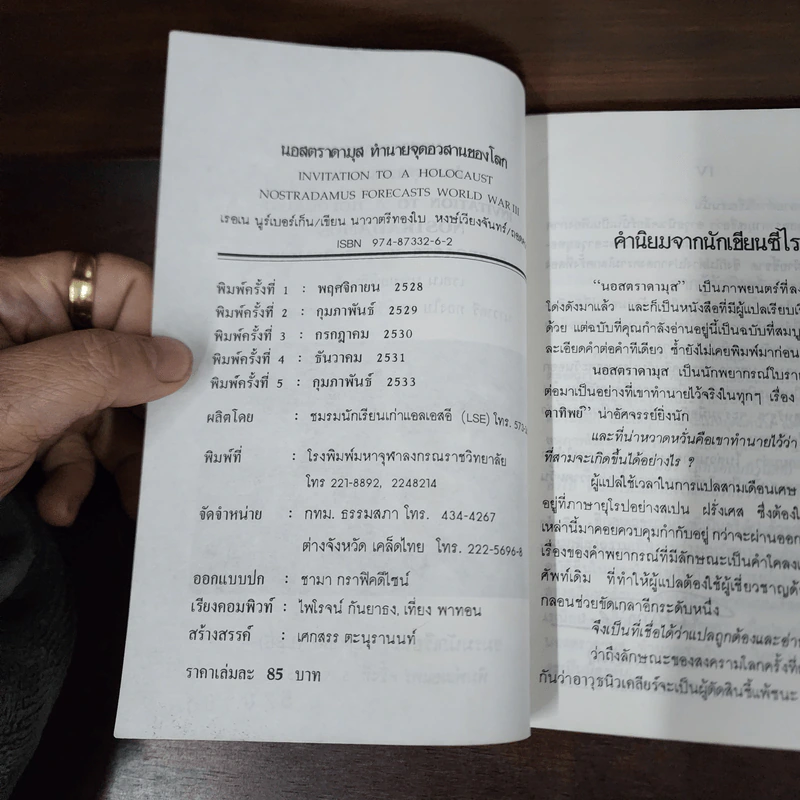 นอสตราดามุส ทำนายจุดอวสานของโลก
INVITATION TO A HOLOCAUST
NOSTRADAMUS FORECASTS WORLD WAR III
เรอเน นูร์เบอร์เก็น/เขียน นาวาตรีทองใบ หงษ์เวียงจันทร์/
ISBN 974-87332-6-2
พิมพ์ครั้งที่ 1 : พฤศจิกายน 2528
พิมพ์ครั้งที่ 2 : กุมภาพันธ์ 2529
พิมพ์ครั้งที่ 3 : กรกฎาคม 2530
พิมพ์ครั้งที่ 4 : ธันวาคม 2531
พิมพ์ครั้งที่ 5 : กุมภาพันธ์ 2533
ผลิตโดย : ชมรมนักเรียนเก่าแอลเอสอี (LSE) โทร. 573-
พิมพ์ที่ : โรงพิมพ์มหาจุฬาลงกรณราชวิทยาลัย
โทร 221-8892, 2248214
จัดจำหน่าย : กทม. ธรรมสภา โทร. 434-4267
ต่างจังหวัด เคล็ดไทย โทร. 222-5696-8
ออกแบบปก : ชามา กราฟิคดีไซน์
เรียงคอมพิวท์ : ไพโรจน์ กันยาธง, เที่ยง พาทอน
สร้างสรรค์ : เศกสรร ตะนุรานนท์
ราคาเล่มละ 85 บาท
IV
คำนิยมจากนักเขียนซีไร
“นอสตราดามุส” เป็นภาพยนตร์ที่ลง
โด่งดังมาแล้ว และก็เป็นหนังสือที่มีผู้แปลเรียบเรี
ด้วย แต่ฉบับที่คุณกำลังอ่านอยู่นี้เป็นฉบับที่สมบู
ละเอียดคำต่อคำทีเดียว ซ้ำยังไม่เคยพิมพ์มาก่อน
นอสตราดามุส เป็นนักพยากรณ์โบรา
ต่อมาเป็นอย่างที่เขาทำนายไว้จริงในทุกๆ เรื่อง
ตาทิพย์” น่าอัศจรรย์ยิ่งนัก
และที่น่าหวาดหวั่นคือเขาทำนายไว้ว่า
ที่สามจะเกิดขึ้นได้อย่างไร ?
ผู้แปลใช้เวลาในการแปลสามเดือนเศษ
อยู่ที่ภาษายุโรปอย่างสเปน ฝรั่งเศส ซึ่งต้องใ
เหล่านี้มาคอยควบคุมกำกับอยู่ กว่าจะผ่านออก
เรื่องของคำพยากรณ์ที่มีลักษณะเป็นคำโคลง
ศัพท์เดิม ที่ทำให้ผู้แปลต้องใช้ผู้เชี่ยวชาญด้
กลอนช่วยขัดเกลาอีกระดับหนึ่ง
จึงเป็นที่เชื่อได้ว่าแปลถูกต้องและอ่าน
ว่าถึงลักษณะของสงครามโลกครั้งที่
กันว่าอาวุธนิวเคลียร์จะเป็นผู้ตัดสินชี้แพ้ชนะ